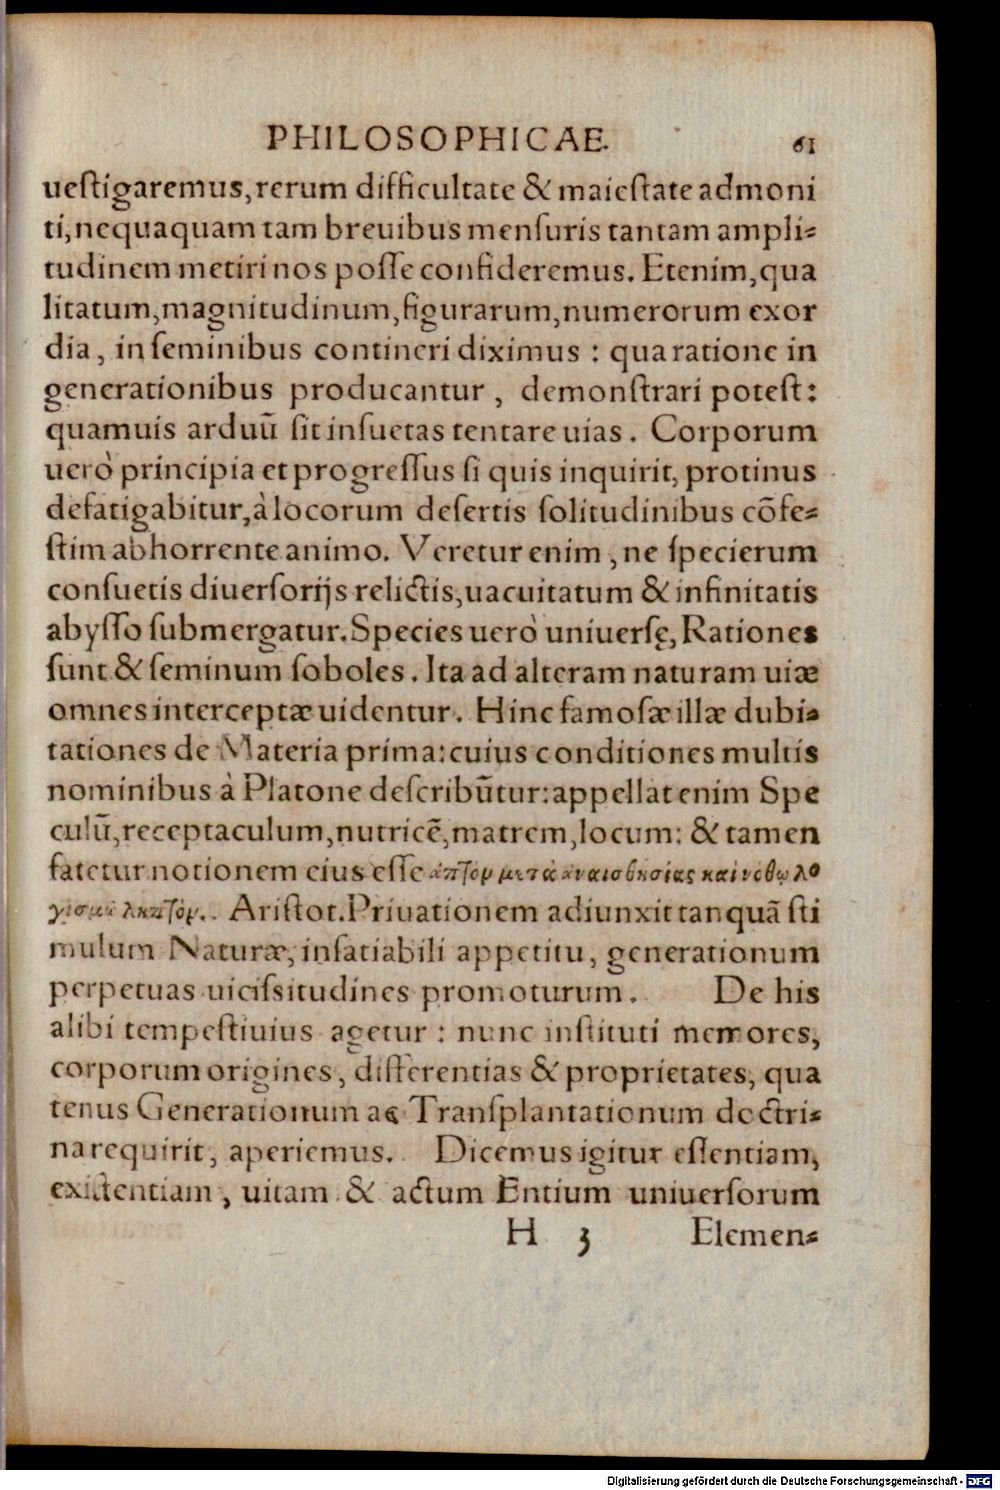 PHILOSOPHICAE. 61
ueſtigaremus, rerum difficultate & maieſtate admoni
ti, nequaquam tam breuibus menſuris tantam ampli⸗
tudinem metiri nos poſſe confideremus. Etenim, qua
litatum, magnitudinum, figurarum, numerorum exor
dia, in ſeminibus contineri diximus: qua ratione in
generationibus producantur, demonſtrari poteſt:
quamuis arduũ ſit inſuetas tentare uias. Corporum
uerò principia et progreſſus ſi quis inquirit, protinus
defatigabitur, à locorum deſertis ſolitudinibus cõfe⸗
ſtim abhorrente animo. Veretur enim, ne ſpecierum
conſuetis diuerſorijs relictis, uacuitatum & infinitatis
abyſſo ſubmergatur. Species uerò uniuerſę, Rationes
ſunt & ſeminum ſoboles. Ita ad alteram naturam uiæ
omnes interceptæ uidentur. Hinc famoſæ illæ dubi⸗
tationes de Materia prima: cuius conditiones multis
nominibus à Platone deſcribũtur: appellat enim Spe
culũ, receptaculum, nutricẽ, matrem, locum: & tamen
fatetur notionem eius eſſe ἁπτὸν μετὰ ἀναισθησίας καὶ νόθῳ λο
γισμῷ ληπτὸν. Ariſtot. Priuationem adiunxit tanquã ſti
mulum Naturæ, inſatiabili appetitu, generationum
perpetuas uiciſsitudines promoturum. De his
alibi tempeſtiuius agetur: nunc inſtituti memores,
corporum origines, differentias & proprietates, qua
tenus Generationum ac Tranſplantationum doctri⸗
na requirit, aperiemus. Dicemus igitur eſſentiam,
exiſtentiam, uitam & actum Entium uniuerſorum
H 3 Elemen⸗
Digitalisierung gefördert durch die Deutsche Forschungsgemeinschaft - DFG